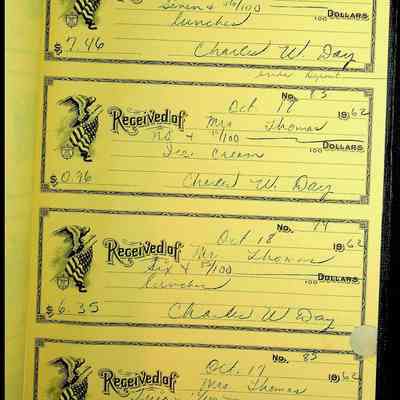 Seven & 46/100 DOLLARS
100
lunches
$ 7.46 Charles W. Day
under Deposit
No. 83
Oct 17 1962
Received of Mrs Thomas
no & /100 DOLLARS
100
Ice Cream
$ 0.76 Charles W. Day
No. 84
Oct 18 1962
Received of Mr Thomas
Six & 35/100 DOLLARS
100
lunches
$ 6.35 Charles W. Day
No. 85
Oct. 17 1962
Received of Mrs Thomas